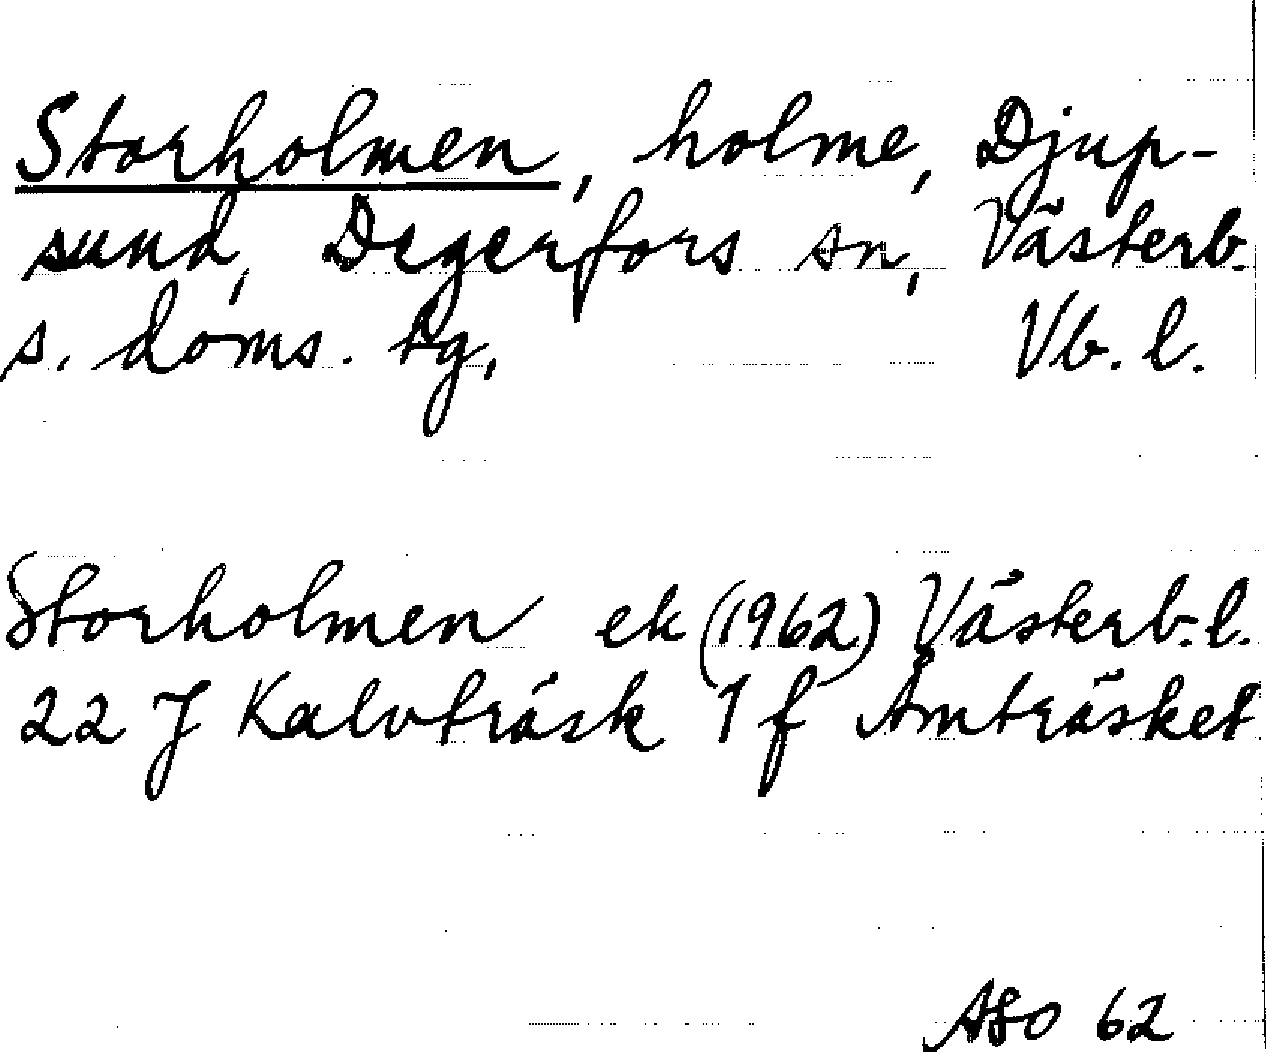 Storholmen, holme, Djup-
sund, Degerfors sn, Västerb.
s. doms. tg, Vb. l.
Storholmen ek (1962) Västerb. l.
22 J Kalvträsk 1 f Åmträsket
ASO 62